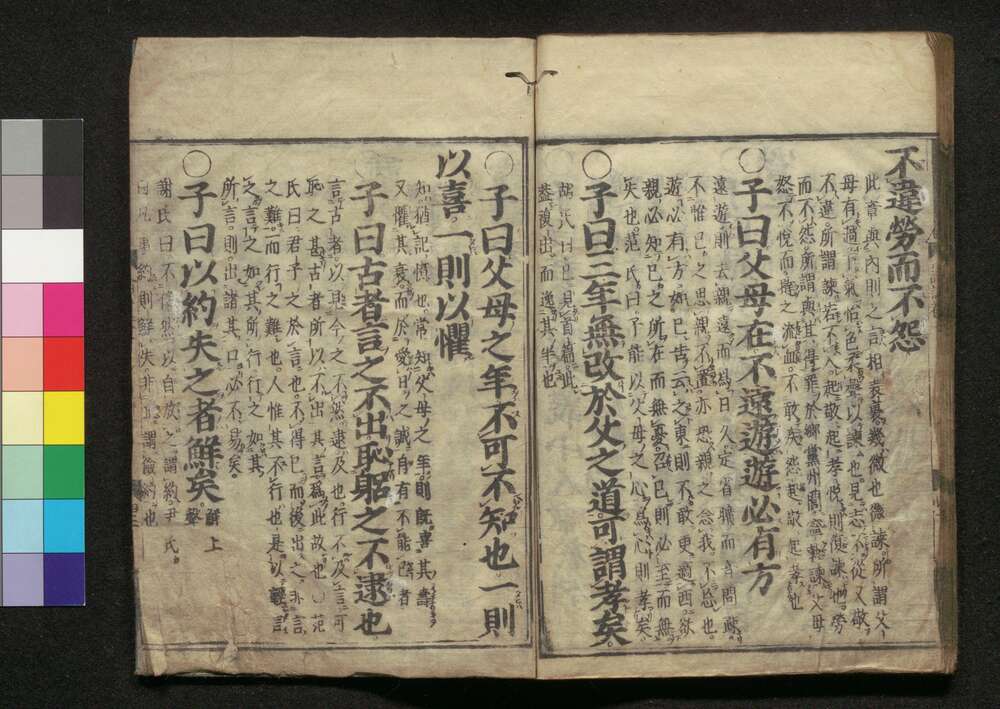 不違勞而不怨
此章與内則之言相表裏幾微也微諫所謂父
母有過下氣怡色柔聲以諫也見志不從又敬
不違所謂諫若不入起敬起孝悅則復諫也勞
而不怨所謂與其得罪於鄉黨州閭寧熟諫父母
怒不悅而撻之流血不敢疾怨起敬起孝也
○子曰父母在不遠遊遊必有方
遠遊則去親遠而爲日久定省曠而音問疎
不惟己之思親不置亦恐親之念我不忘也
遊必有方如已告云之東則不敢更適西欲
親必知己之所在而無憂召己則必至而無
失也范氏曰子能以父母之心爲心則孝矣
○子曰三年無改於父之道可謂孝矣
胡氏曰已見首篇此
蓋複出而逸其半也
○子曰父母之年不可不知也一則
以喜一則以懼
知猶記憶也常知父母之年則既喜其壽
又懼其衰而於愛日之誠自有不能已者
○子曰古者言之不出恥躬之不逮也
言古者以見今之不然逮及也行不及言可
恥之甚古者所以不出其言爲此故也○范
氏曰君子之於言也不得已而後出之非言
之難而行之難也人惟其不行也是以輕言
之言之如其所行行之如其
所言則出諸其口必不易矣
○子曰以約失之者鮮矣 鮮上聲
謝氏曰不侈然以自放之謂約尹氏
曰凡事約則鮮失非止謂儉約也